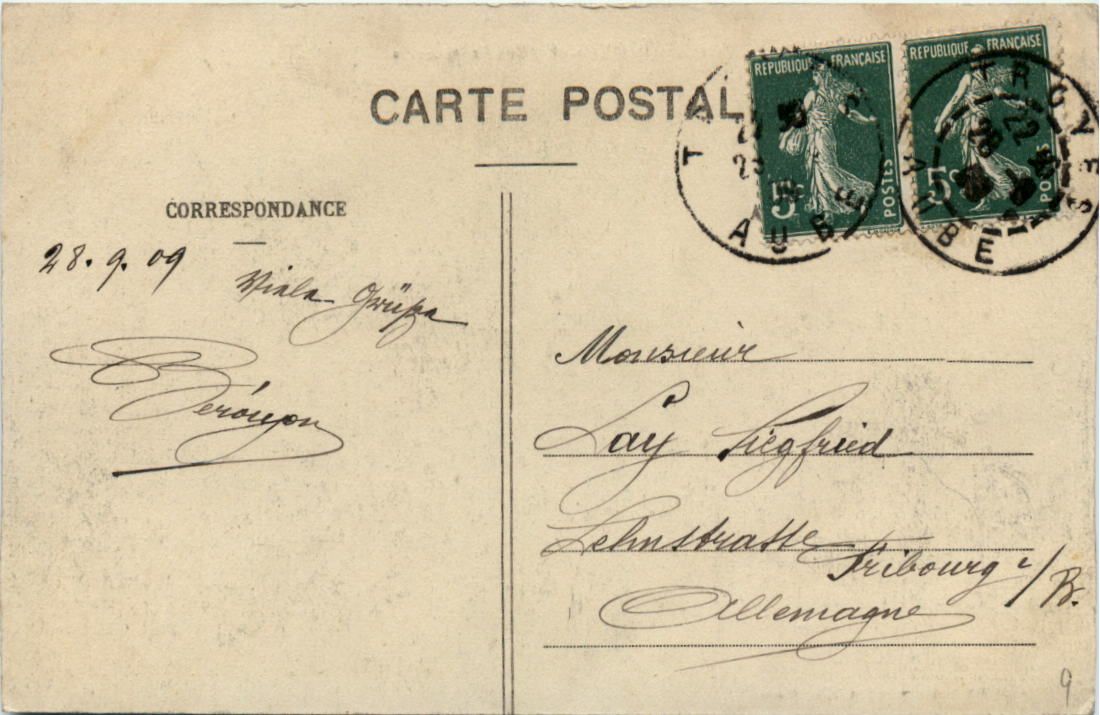 CARTE POSTALE
REPUBLIQUE FRANÇAISE
5c
POSTES
REPUBLIQUE FRANÇAISE
5c
POSTES
AUBE
TROYES
22
28
AUBE
CORRESPONDANCE
28.9.09
Viele Grüße
Monsieur
Lay Siegfried
Lehnstrasse
Fribourg i/B.
Allemagne
9